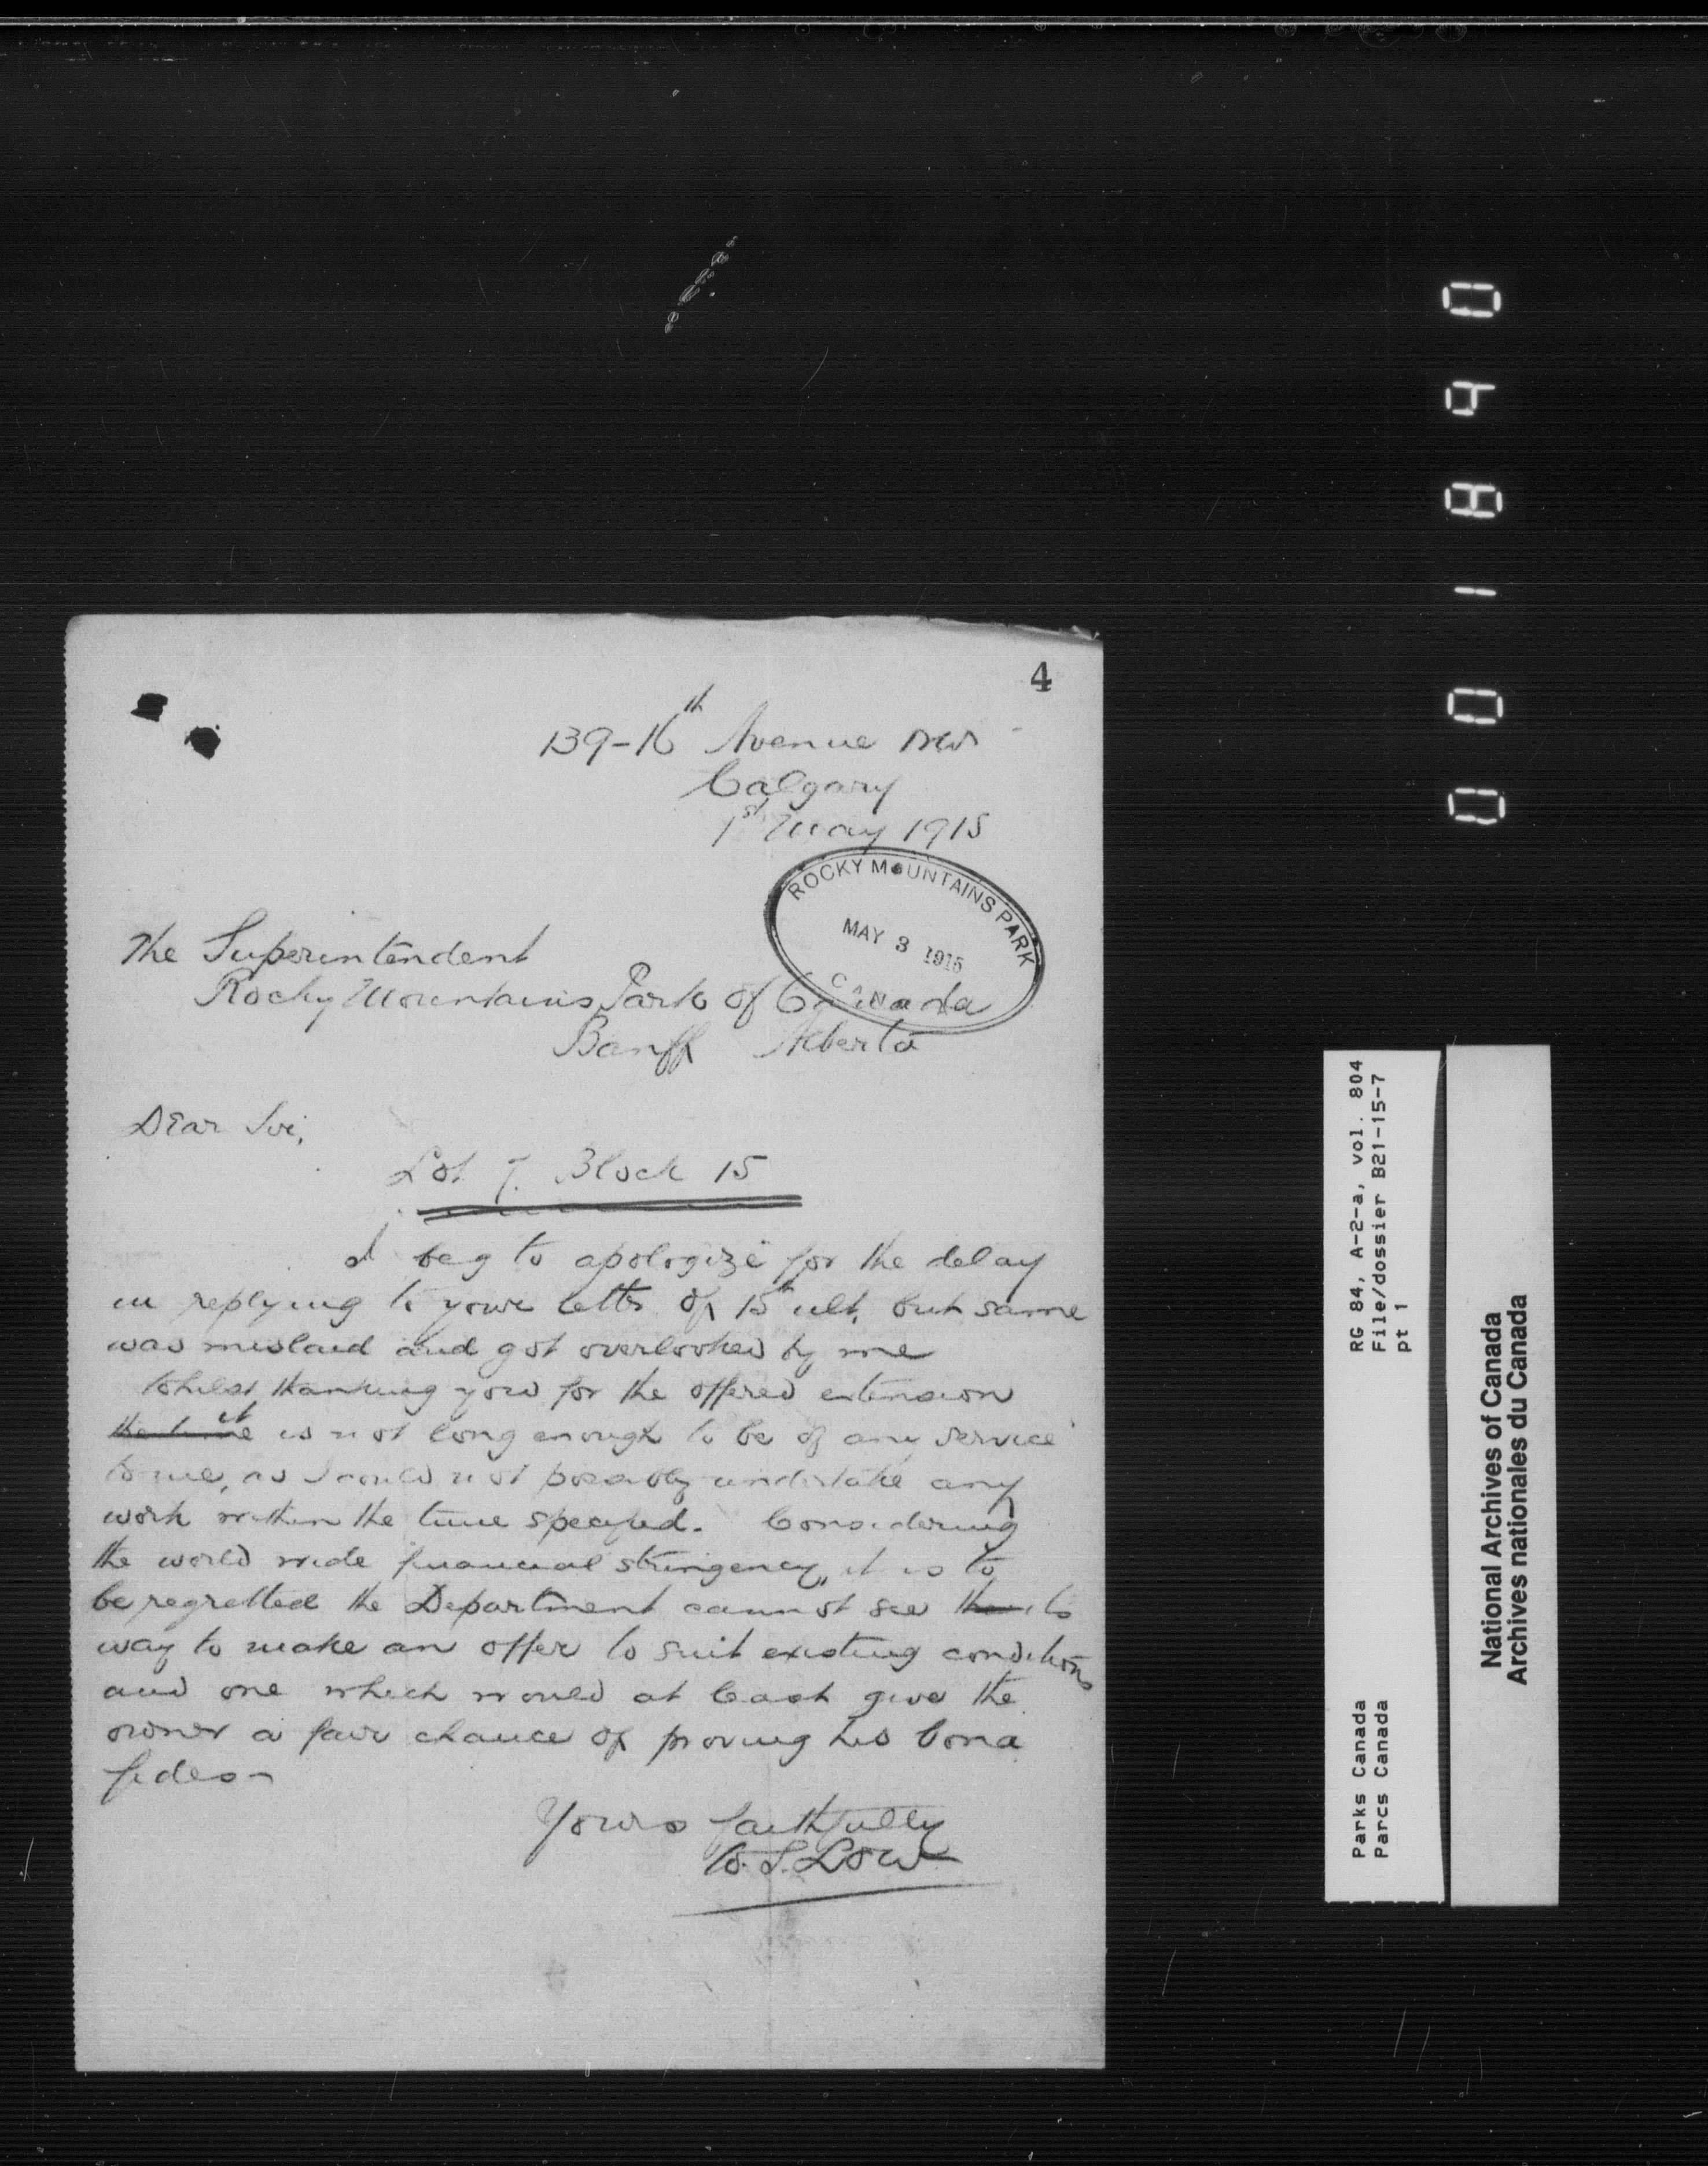 4
139-16th Avenue NW
Calgary
1st May 1915
ROCKY MOUNTAINS PARK
MAY 3 1915
CANADA
The Superintendent
Rocky Mountains Park of Canada
Banff Alberta
Dear Sir,
Lot 7. Block 15
I beg to apologize for the delay
in replying to your letter of 15th ult. but same
was mislaid and got overlooked by me
Whilst thanking you for the offered extension
the time it is not long enough to be of any service
to me, as I could not possibly undertake any
work within the time specified. Considering
the world wide financial stringency, it is to
be regretted the Department cannot see its
way to make an offer to suit existing conditions
and one which would at least give the
owner a fair chance of proving his bona
fides-
Yours faithfully
W. S. Low
0018490
RG 84, A-2-a, vol. 804
File/dossier B21-15-7
pt 1
Parks Canada
Parcs Canada
National Archives of Canada
Archives nationales du Canada